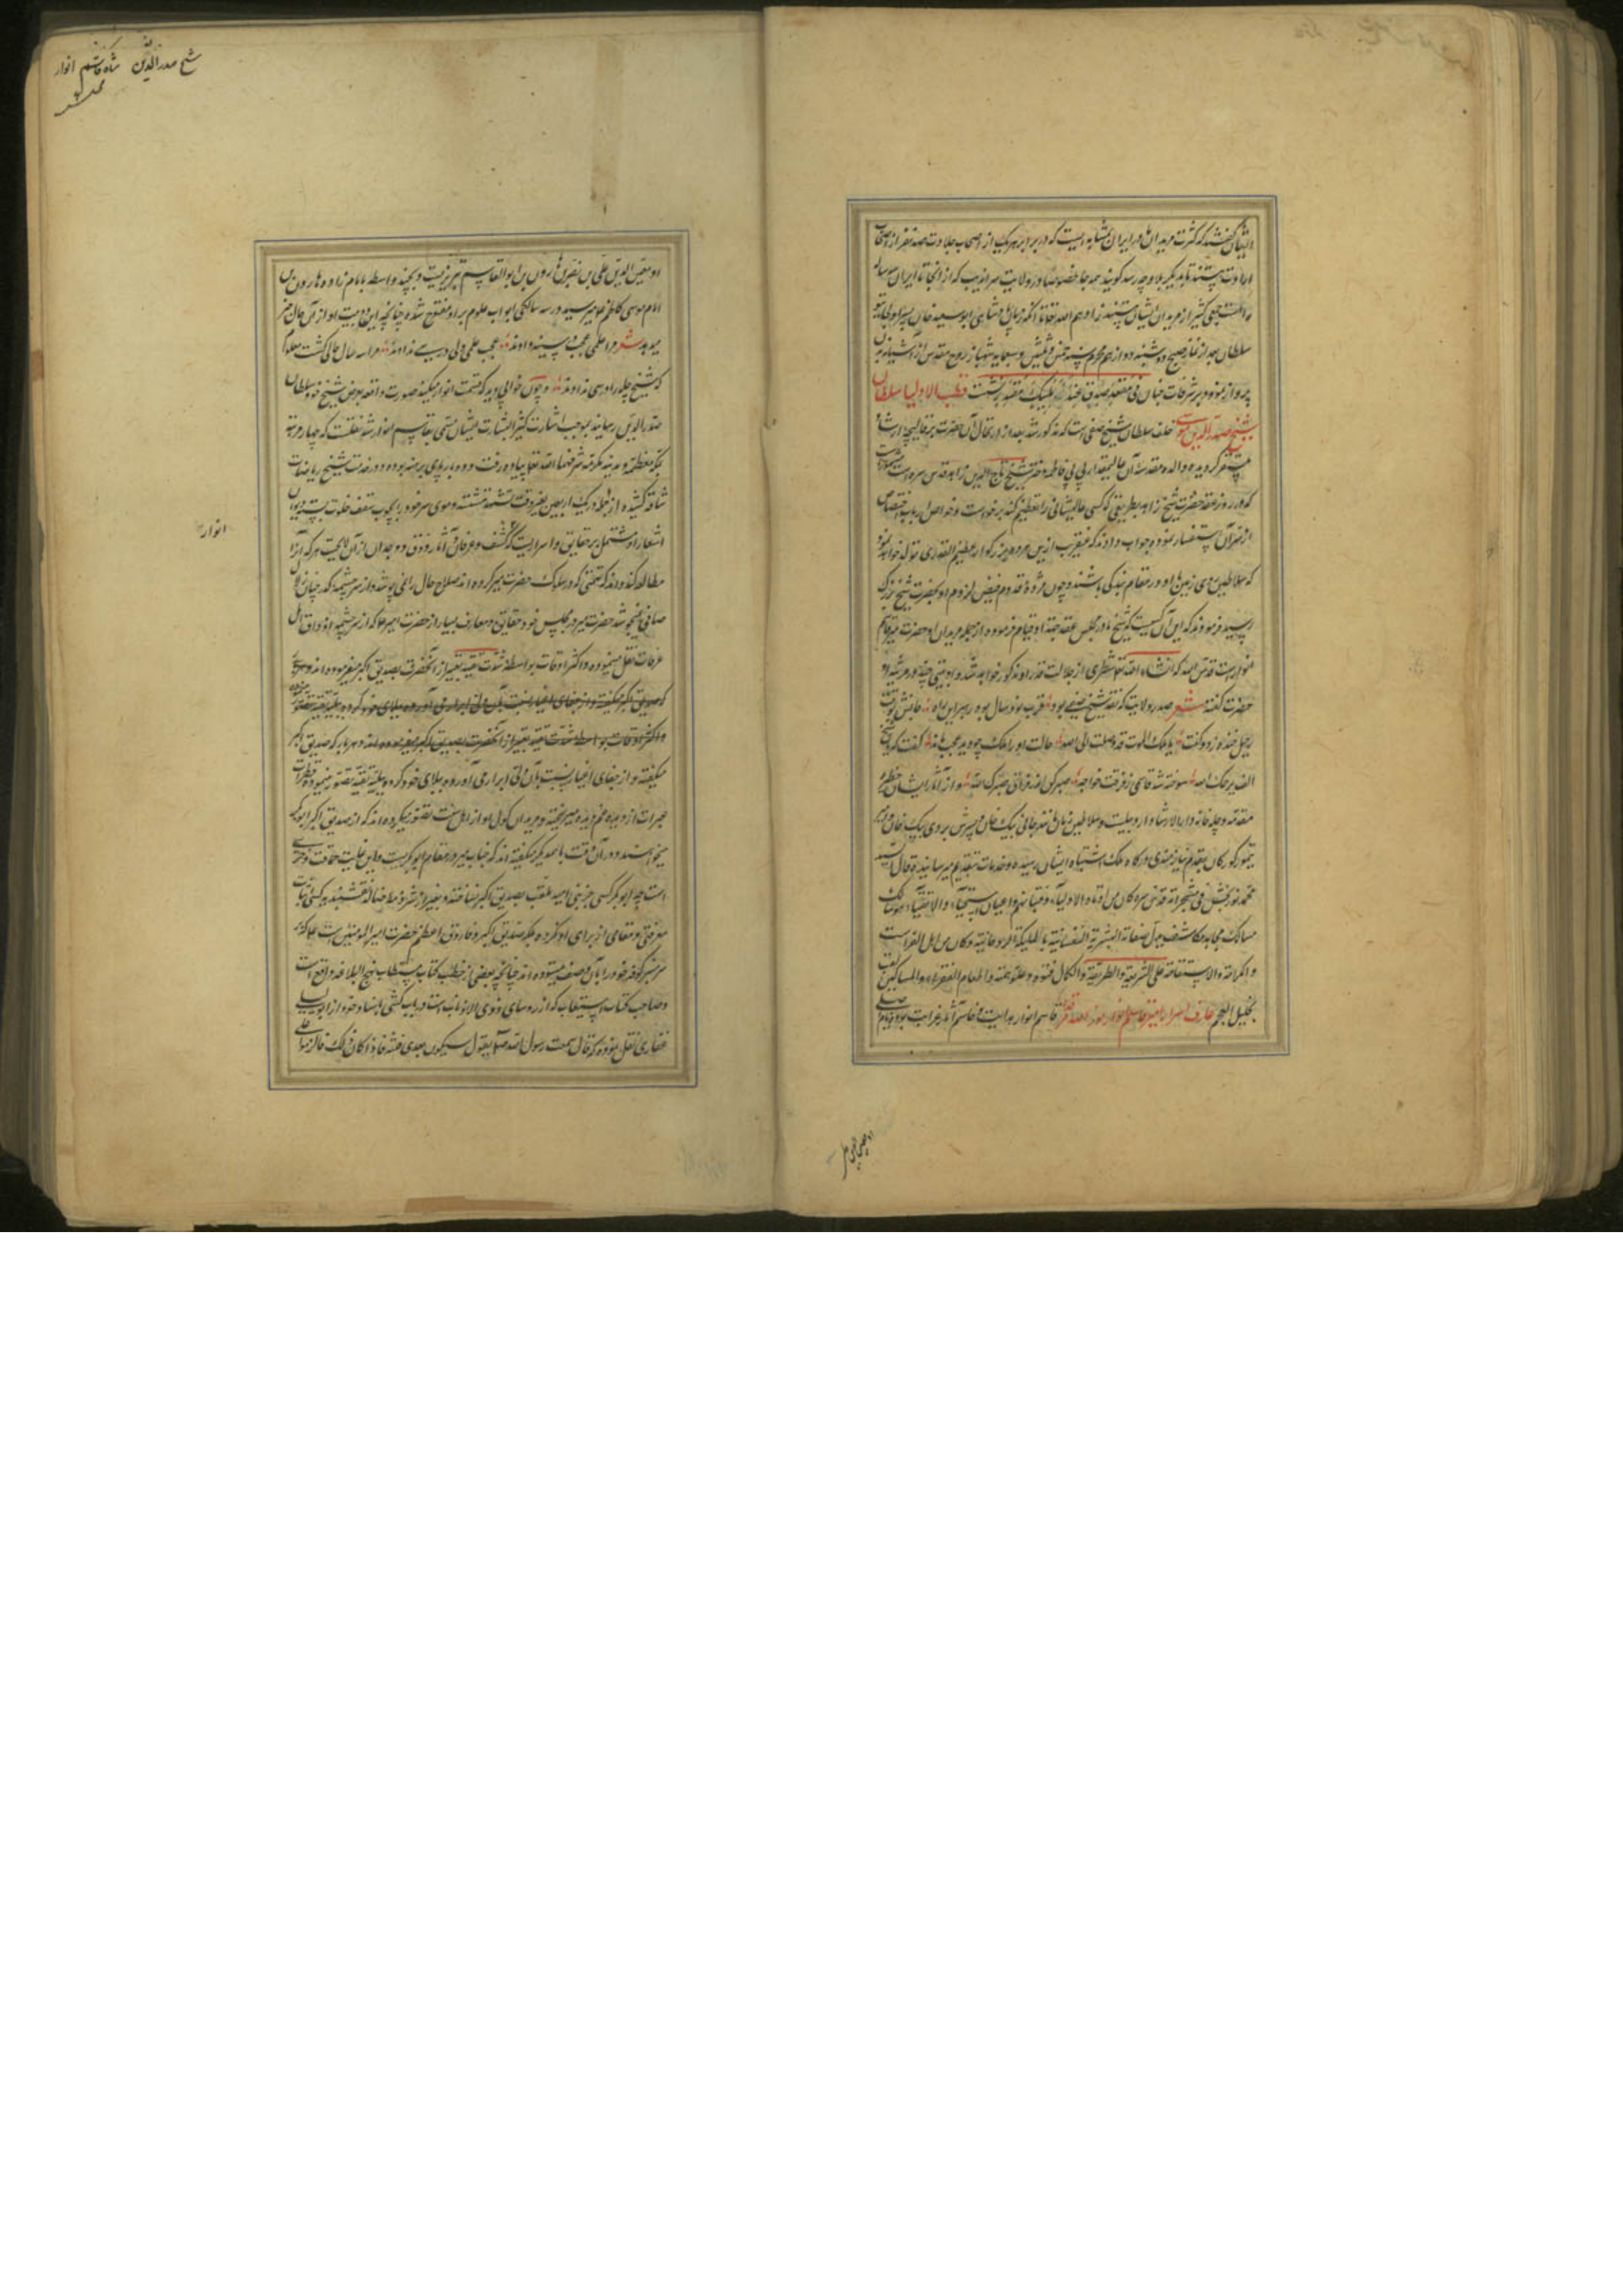 ایشان گفتند که کثرت مریدان ما در ایران بمثابه ایست که در برابر هریک از اصحاب جلادت صد نفر از اصحاب
ارادت هستند تا بدیگر بلاد چه رسد گویند همه جا خصوصا در ولایت سراندیب که از آنجا تا ایران
جمعی کثیر از مریدان ایشان هستند زادهم الله
سلطان بعد از نماز صبح دوشنبه دوازدهم محرم سنه خمس و ثلثین و سبعمایه شهباز روح مقدس از آشیانه
پرواز نموده بر شرفات جنان فی مقعد صدق عند ملیک مقتدر نشست قطب الاولیا سلطان
شیخ صدر الدین موسی خلف سلطان شیخ صفی است که مذکور شد بعد از ارتحال آن حضرت بر قالیچه ارشاد
متمکن گردیده والده مقدسه آن عالیمقدار بی بی فاطمه دختر شیخ تاج الدین زاهد قدس سره است
که در روز عقد حضرت شیخ زاهد بطریقی که کسی عالیشانی را تعظیم کند برخواست و خواص ارباب اختصاص
از سر آن استفسار نموده جواب دادند که عنقریب از این مرد بزرگوار عظیم القدری متولد خواهد شد
که سلاطین روی زمین او را در مقام بندگی باشند و چون مژده قدوم فیض لزوم او بحضرت شیخ بزرگ
رسید فرمودند که این آن کسیت که شیخ ما در مجلس عقد جهت او قیام فرموده از جمله مریدان او حضرت میر قاسم
انوار است قدس الله که انشاء الله تعالی شطری از جلالت قدر او مذکور خواهد شد و او بیتی چند در مرثیه او
حضرت گفته شعر صدر ولایت که نقد شیخ صفی بود قرب نود سال بود رهبر این راه جانش بوقت
رحیل خنده زد و گفت یا ملک الموت قد وصلت الی الله حالت او را ملک چو دید عجب ماند گفت که یا شیخ
الف یرحمک الله سوخته شد قاسمی ز فرقت خواجه صبر کن اندر فراق صبرک لله و از آثار ایشان حظیره
مقدسه و چله خانه و دار الارشاد اردبیلست و سلاطین زمان مثل جانی بیک خان و پسرش بردی بیک خان و امیر
تیمور کورکان بقدم نیازمندی درگاه ملک اشتباه ایشان رسیده وخدمات بتقدیم میرسانیدند قال السید
محمد نوربخش فی مشجراته قدس سره کان من اوتاد الاولیاء و نقبائهم و اعیان النجباء والاتقیاء هو سالک
مسالک مجاهد مکاشف بدل صفاته البشریة النفسانیة بالملیکة الروحانیة و کان من اهل الفراست
و الکرامة والاستقامة علی الشریعة والطریقة والکمال فتوة و علو همة و اطعام الفقراء والمساکین لقب
بخلیل العجم عارف اسرار امیر قاسم انوار نور الله مرقده قاسم انوار هدایت و قاسم آثار غوایت بود و نام اصلی
او معین الدین علی بن نصیر بن هارون بن ابو القاسم تبریزیست و بچند واسطه بامام زاده هارون بن
امام موسی کاظم ع میرسد در سه سالگی ابواب علوم بر او مفتوح شده چنانچه این دو بیت او از آن حال خبر
میدهد شعر مرا علمی عجب در سینه دادند عجب علمی ولی درسی ندادند مرا سه سال حالی گشت معلوم
که شیخ چله را در سی ندادند و چون خوابی دید که قسمت انوار میکند صورت واقعه بعرض شیخ خود سلطان
صدر الدین رسانید بموجب اشارت کثیر البشارت ایشان مسمی بقاسم انوار شد نقلست که چهار مرتبه
بمکه معظمه و مدینه مکرمه شرفهما الله تعالی پیاده رفت و دو بار پای برهنه بوده و در خدمت شیخ ریاضات
شاقه کشیده از جمله در یک اربعین بغیر وقت تشهد ننشسته و موی سر خود را بچوب سقف خلوت بسته دیوان
اشعار او مشتمل بر حقایق و اسراریست که کشف و عرفان و آثار ذوق و وجدان از آن لایحست هر که آنرا
مطالعه کند داند که تهمتی که در سلوک حضرت میر کرده اند صلاح حال را نمی پوشد و از سر چشمه کدر چنان زلال
صافی نمیجوشد حضرت میر در مجلس خود حقایق و معارف بسیار از حضرت امیر ع که از سر چشمه اذواق اهل
عرفان نقل مینموده و اکثر اوقات بواسطه شدت تقیه تعبیر از آنحضرت بصدیق اکبر میفرموده اند و هر بار
که صدیق اکبر میگفته و از جفای اغیار نسبت بآن ولی ابرار می آورده و بپلای خود کرده
و اکثر اوقات بواسطه شدت تقیه تعبیر از آنحضرت بصدیق اکبر میفرموده اند و هر بار که صدیق اکبر
میگفته و از جفای اغیار نسبت بآن ولی ابرار می آورده و بپلای خود کرده ببلیه تقیه تصور مینموده قطرات
عبرات از دیده غم دیده میریخته و مریدان کول او از اهل سنت تصور میکرده اند که از صدیق اکبر ابو بکر
میخواسته و در آن وقت با همدیگر میگفته اند که جناب میر در مقام ابو بکریست و این غایت حماقت و خریت
است چه ابو بکر کسی جز بنی امیه ملقب بصدیق اکبر نساخته و بغیر از شرذمه ضاله نقشبندیه کسی اثبات
معرفتی و مقامی از برای او نکرده بلکه صدیق اکبر و فاروق اعظم حضرت امیر المومنین است ع که بر
سر منبر کوفه خود را بآن وصف مینموده اند چنانچه بعضی از خطب کتاب مستطاب نهج البلاغه واقع است
و صاحب کتاب استیعاب که از روسای ذوی الاذناب است در باب کنی باسناد خود از ابو لیلی
غفاری نقل نموده که قال سمعت رسول الله صلعم یقول سیکون بعدی فتنة فاذا کان ذلک فالزموا علی
شیخ صدر الدین شاه قاسم انوار
انوار
او معین الدین